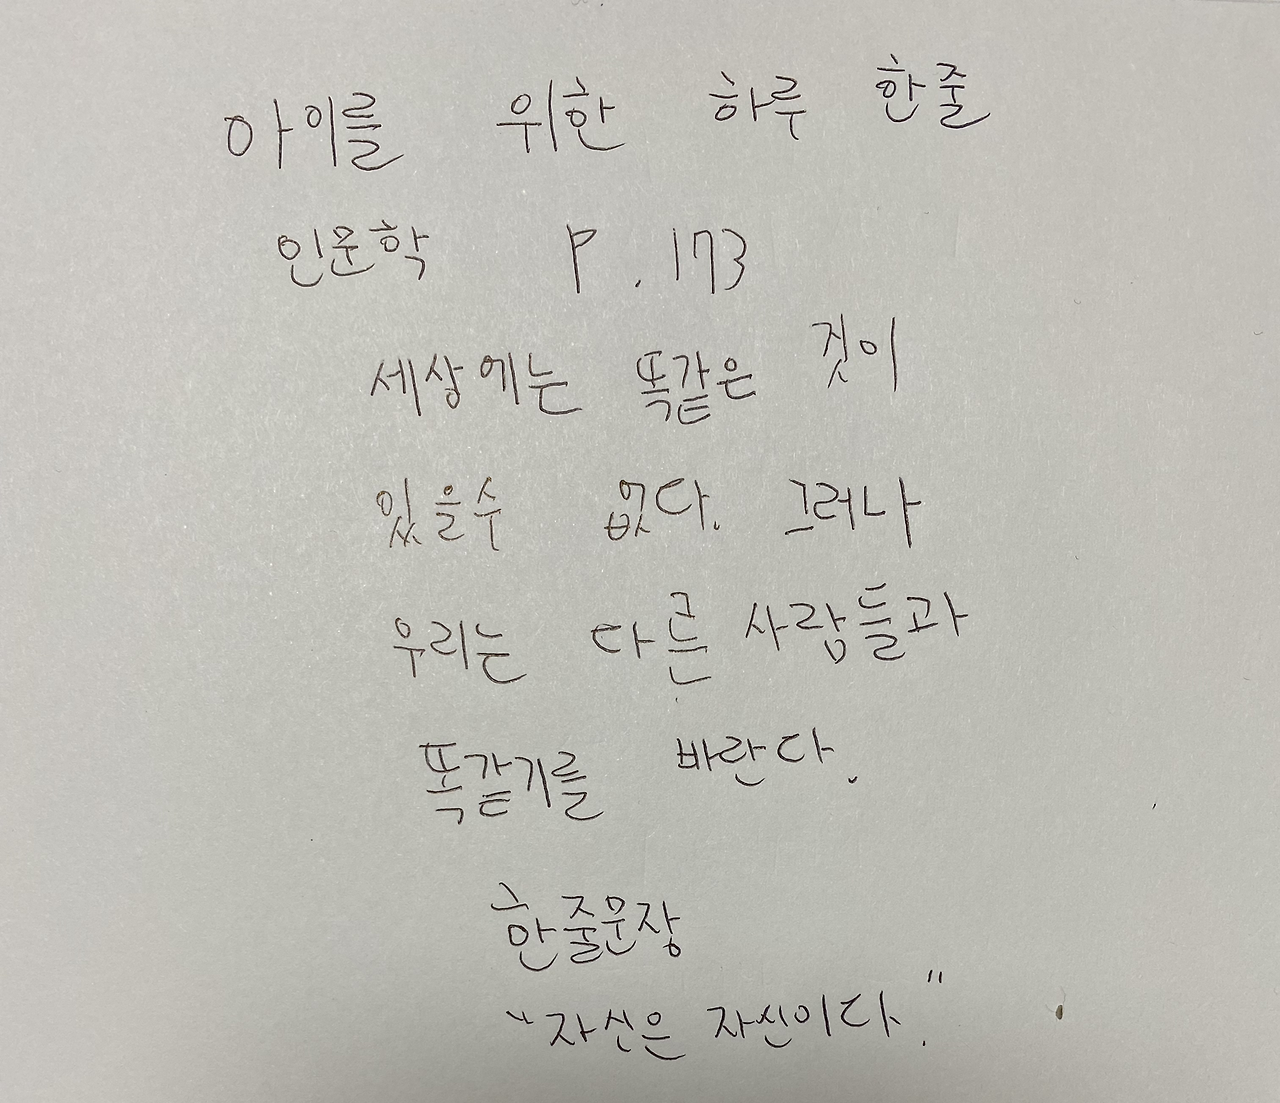 아이를 위한 하루 한줄
인문학 P. 173
세상에는 똑같은 것이
있을수 없다. 그러나
우리는 다른 사람들과
똑같기를 바란다.
한줄문장
"자신은 자신이다."